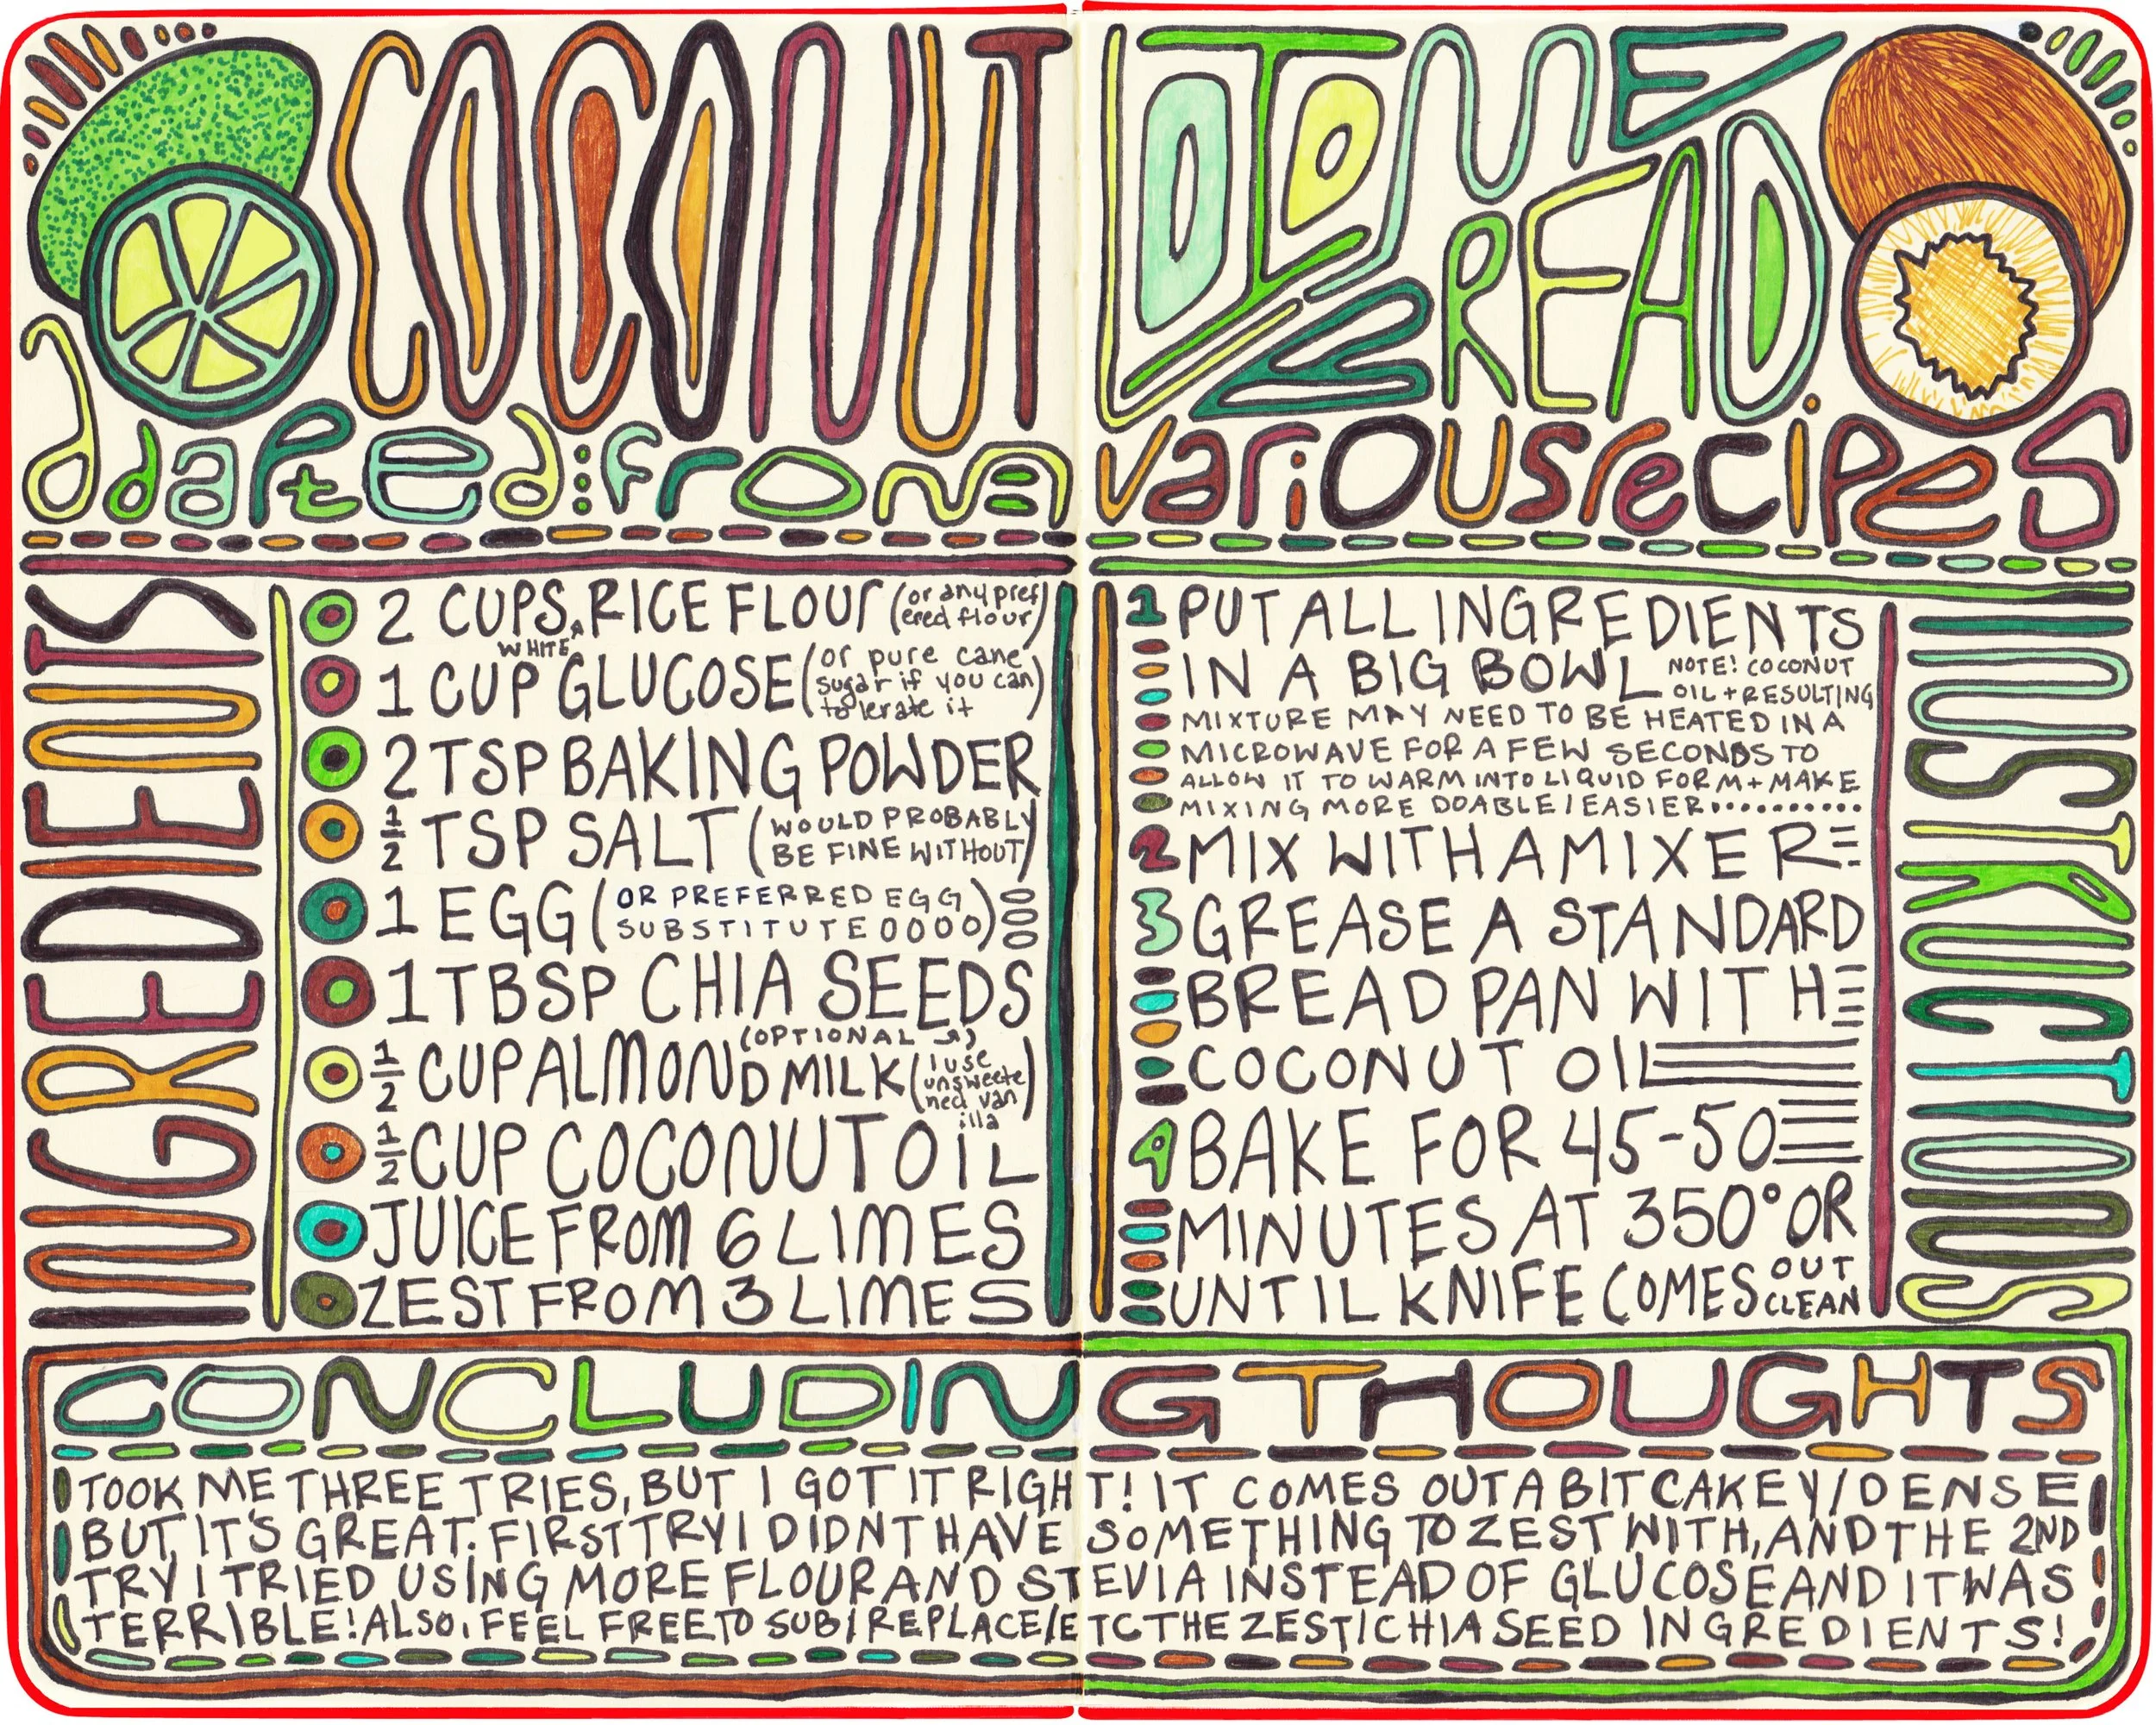 COCONUT LIME BREAD
adapted: from various recipes
INGREDIENTS
2 CUPS WHITE RICE FLOUR (or any preferred flour)
1 CUP GLUCOSE (or pure cane sugar if you can tolerate it)
2 TSP BAKING POWDER
1/2 TSP SALT (WOULD PROBABLY BE FINE WITHOUT)
1 EGG (OR PREFERRED EGG SUBSTITUTE OOOO)
1 TBSP CHIA SEEDS
(OPTIONAL ⤴)
1/2 CUP ALMOND MILK (I use unsweetened vanilla)
1/2 CUP COCONUT OIL
JUICE FROM 6 LIMES
ZEST FROM 3 LIMES
INSTRUCTIONS
1 PUT ALL INGREDIENTS
IN A BIG BOWL NOTE! COCONUT
OIL + RESULTING
MIXTURE MAY NEED TO BE HEATED IN A
MICROWAVE FOR A FEW SECONDS TO
ALLOW IT TO WARM INTO LIQUID FORM + MAKE
MIXING MORE DOABLE/EASIER...........
2 MIX WITH A MIXER
3 GREASE A STANDARD
BREAD PAN WITH
COCONUT OIL
4 BAKE FOR 45-50
MINUTES AT 350° OR
UNTIL KNIFE COMES OUT CLEAN
CONCLUDING THOUGHTS
TOOK ME THREE TRIES, BUT I GOT IT RIGHT! IT COMES OUT A BIT CAKEY/DENSE
BUT IT'S GREAT. FIRST TRY I DIDNT HAVE SOMETHING TO ZEST WITH, AND THE 2ND
TRY I TRIED USING MORE FLOUR AND STEVIA INSTEAD OF GLUCOSE AND IT WAS
TERRIBLE! ALSO, FEEL FREE TO SUB/REPLACE/ETC THE ZEST/CHIA SEED INGREDIENTS!